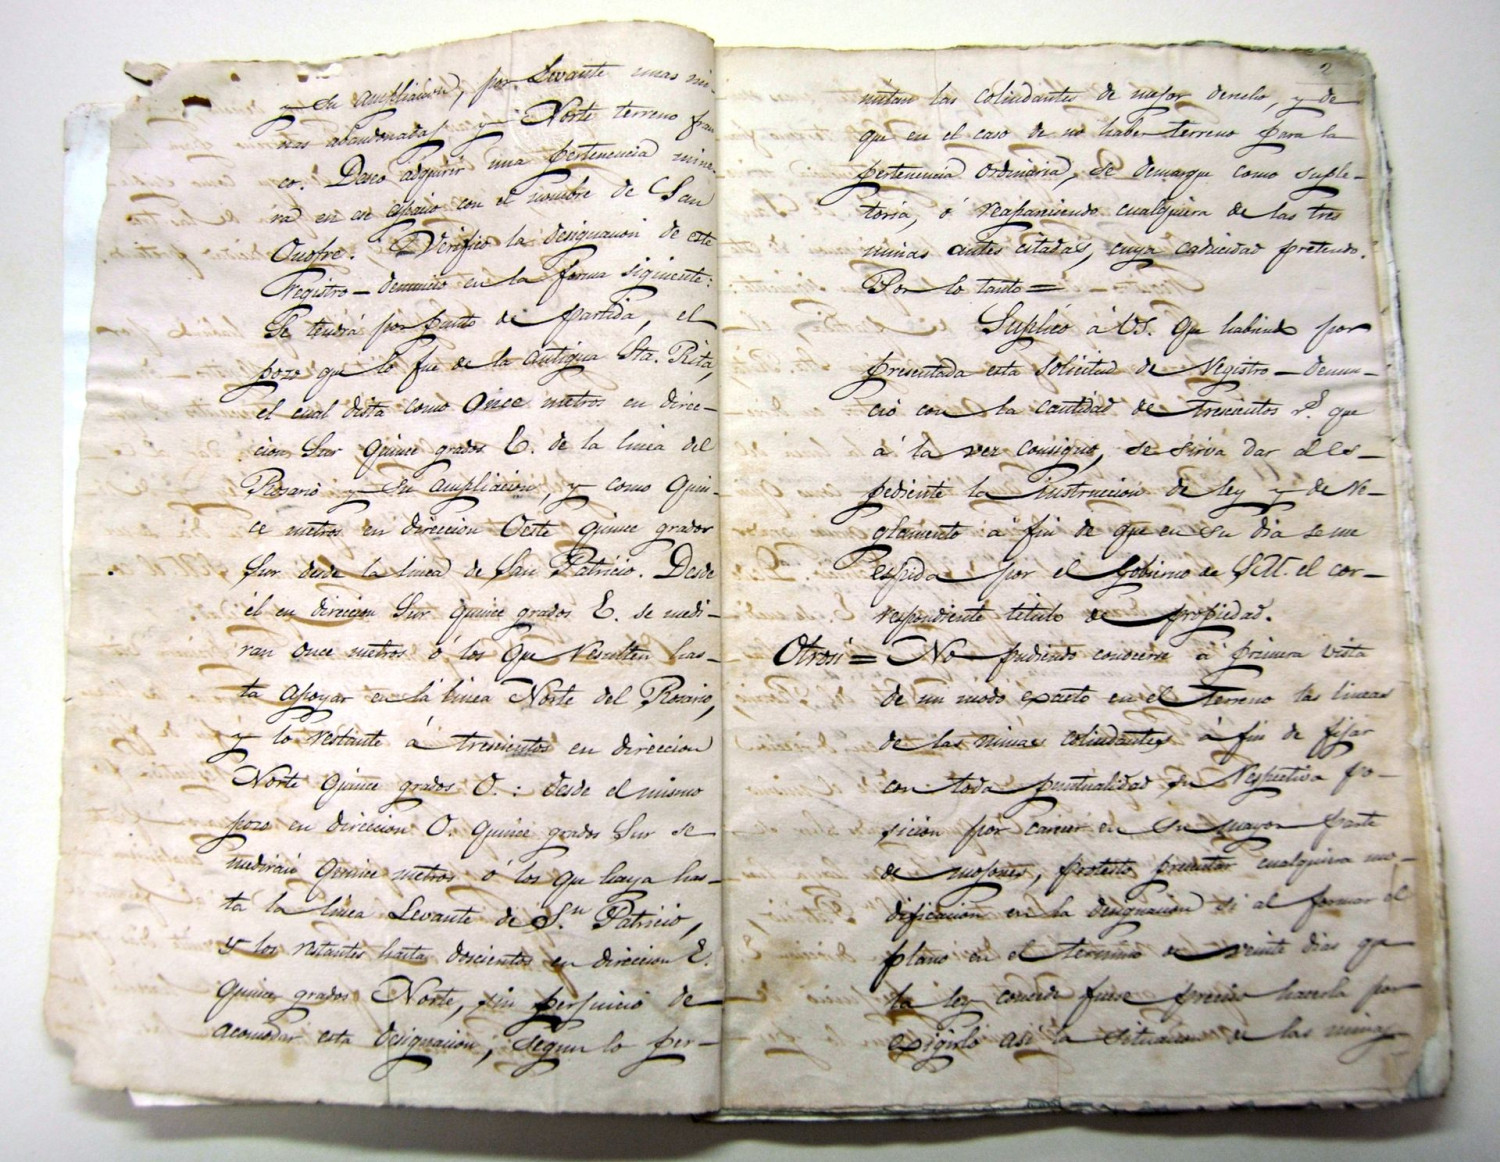 y su ampliacion, por Levante unas mi-
nas abandonadas y Norte terreno fran-
co. Deseo adquirir una pertenencia mine-
ra en ese espacio con el nombre de San
Onofre. Verifico la designacion de este
Registro-denuncio en la forma siguiente:
Se tendrá por punto de partida, el
pozo que lo fue de la antigua Sta. Rita,
el cual dista como Once metros en direc-
cion Sur quince grados E. de la linea del
Rosario y su ampliacion, y como quin-
ce metros en direccion Oeste quince grados
Sur desde la linea de San Patricio. Desde
él en direccion Sur quince grados E. se medi-
ran once metros ó los que resulten has-
ta apoyar en la linea Norte del Rosario,
y lo restante á trescientos en direccion
Norte quince grados O.: desde el mismo
pozo en direccion O. quince grados Sur se
mediran quince metros ó los que haya has-
ta la linea Levante de Sn. Patricio,
y los restantes hasta doscientos en direccion E.
quince grados Norte, sin perjuicio de
acomodar esta designacion, segun lo per-
2
mitan las colindantes de mejor derecho, y de
que en el caso de no haber terreno para la
pertenencia ordinaria, se demarque como suple-
toria, ó reapareciendo cualquiera de las tres
minas antes citadas, cuya caducidad pretendo.
Por lo tanto=
Suplico á VS. que habiendo por
presentada esta solicitud de Registro-denun-
cio con la cantidad de trescientos rs. que
á la vez consigno, se sirva dar al es-
pediente la instruccion de ley y de Re-
glamento á fin de que en su dia se me
espida por el Gobierno de S.M. el cor-
respondiente titulo de propiedad.
Otrosi= No pudiendo conocerse á primera vista
de un modo exacto en el terreno las lineas
de las minas colindantes á fin de fijar
con toda puntualidad su respectiva po-
sicion por carecer en su mayor parte
de mojones, protesto presentar cualquiera mo-
dificacion en la designacion si al formar el
plano en el termino de veinte dias que
la ley concede fuese preciso hacerla por
exigirlo asi la situacion de las minas